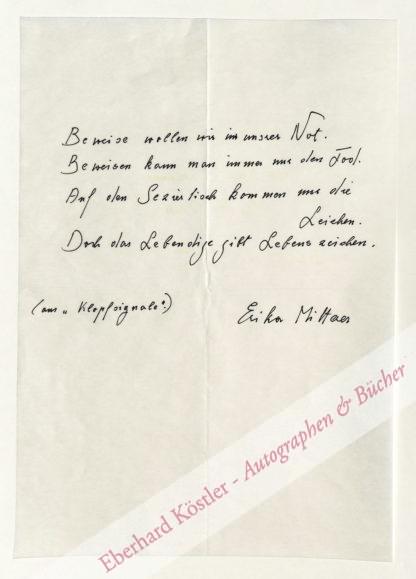 Beweise wollen wir in unsrer Not.
Beweisen kann man immer nur den Tod.
Auf den Seziertisch kommen nur die
Leichen.
Doch das Lebendige gibt Lebenszeichen.
(aus "Klopfsignale".)
Erika Mitterer
Eberhard Köstler - Autographen & Bücher